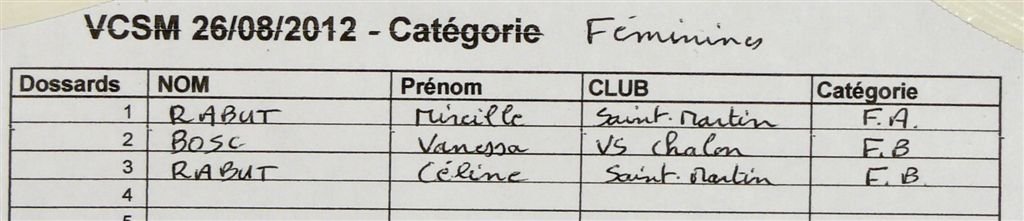 VCSM 26/08/2012 - Catégorie Féminines
Dossards NOM Prénom CLUB Catégorie
1 RABUT Mireille Saint-Martin F.A.
2 BOSC Vanessa VS Chalon F.B
3 RABUT Céline Saint-Martin F.B.
4
5